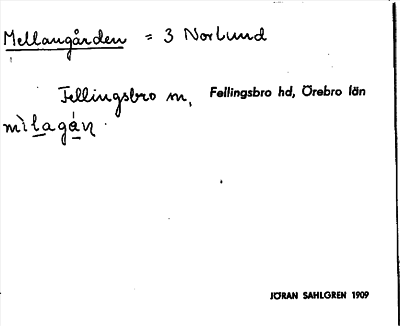 Mellangården = 3 Norlund
Fellingsbro sn, Fellingsbro hd, Örebro län
JÖRAN SAHLGREN 1909